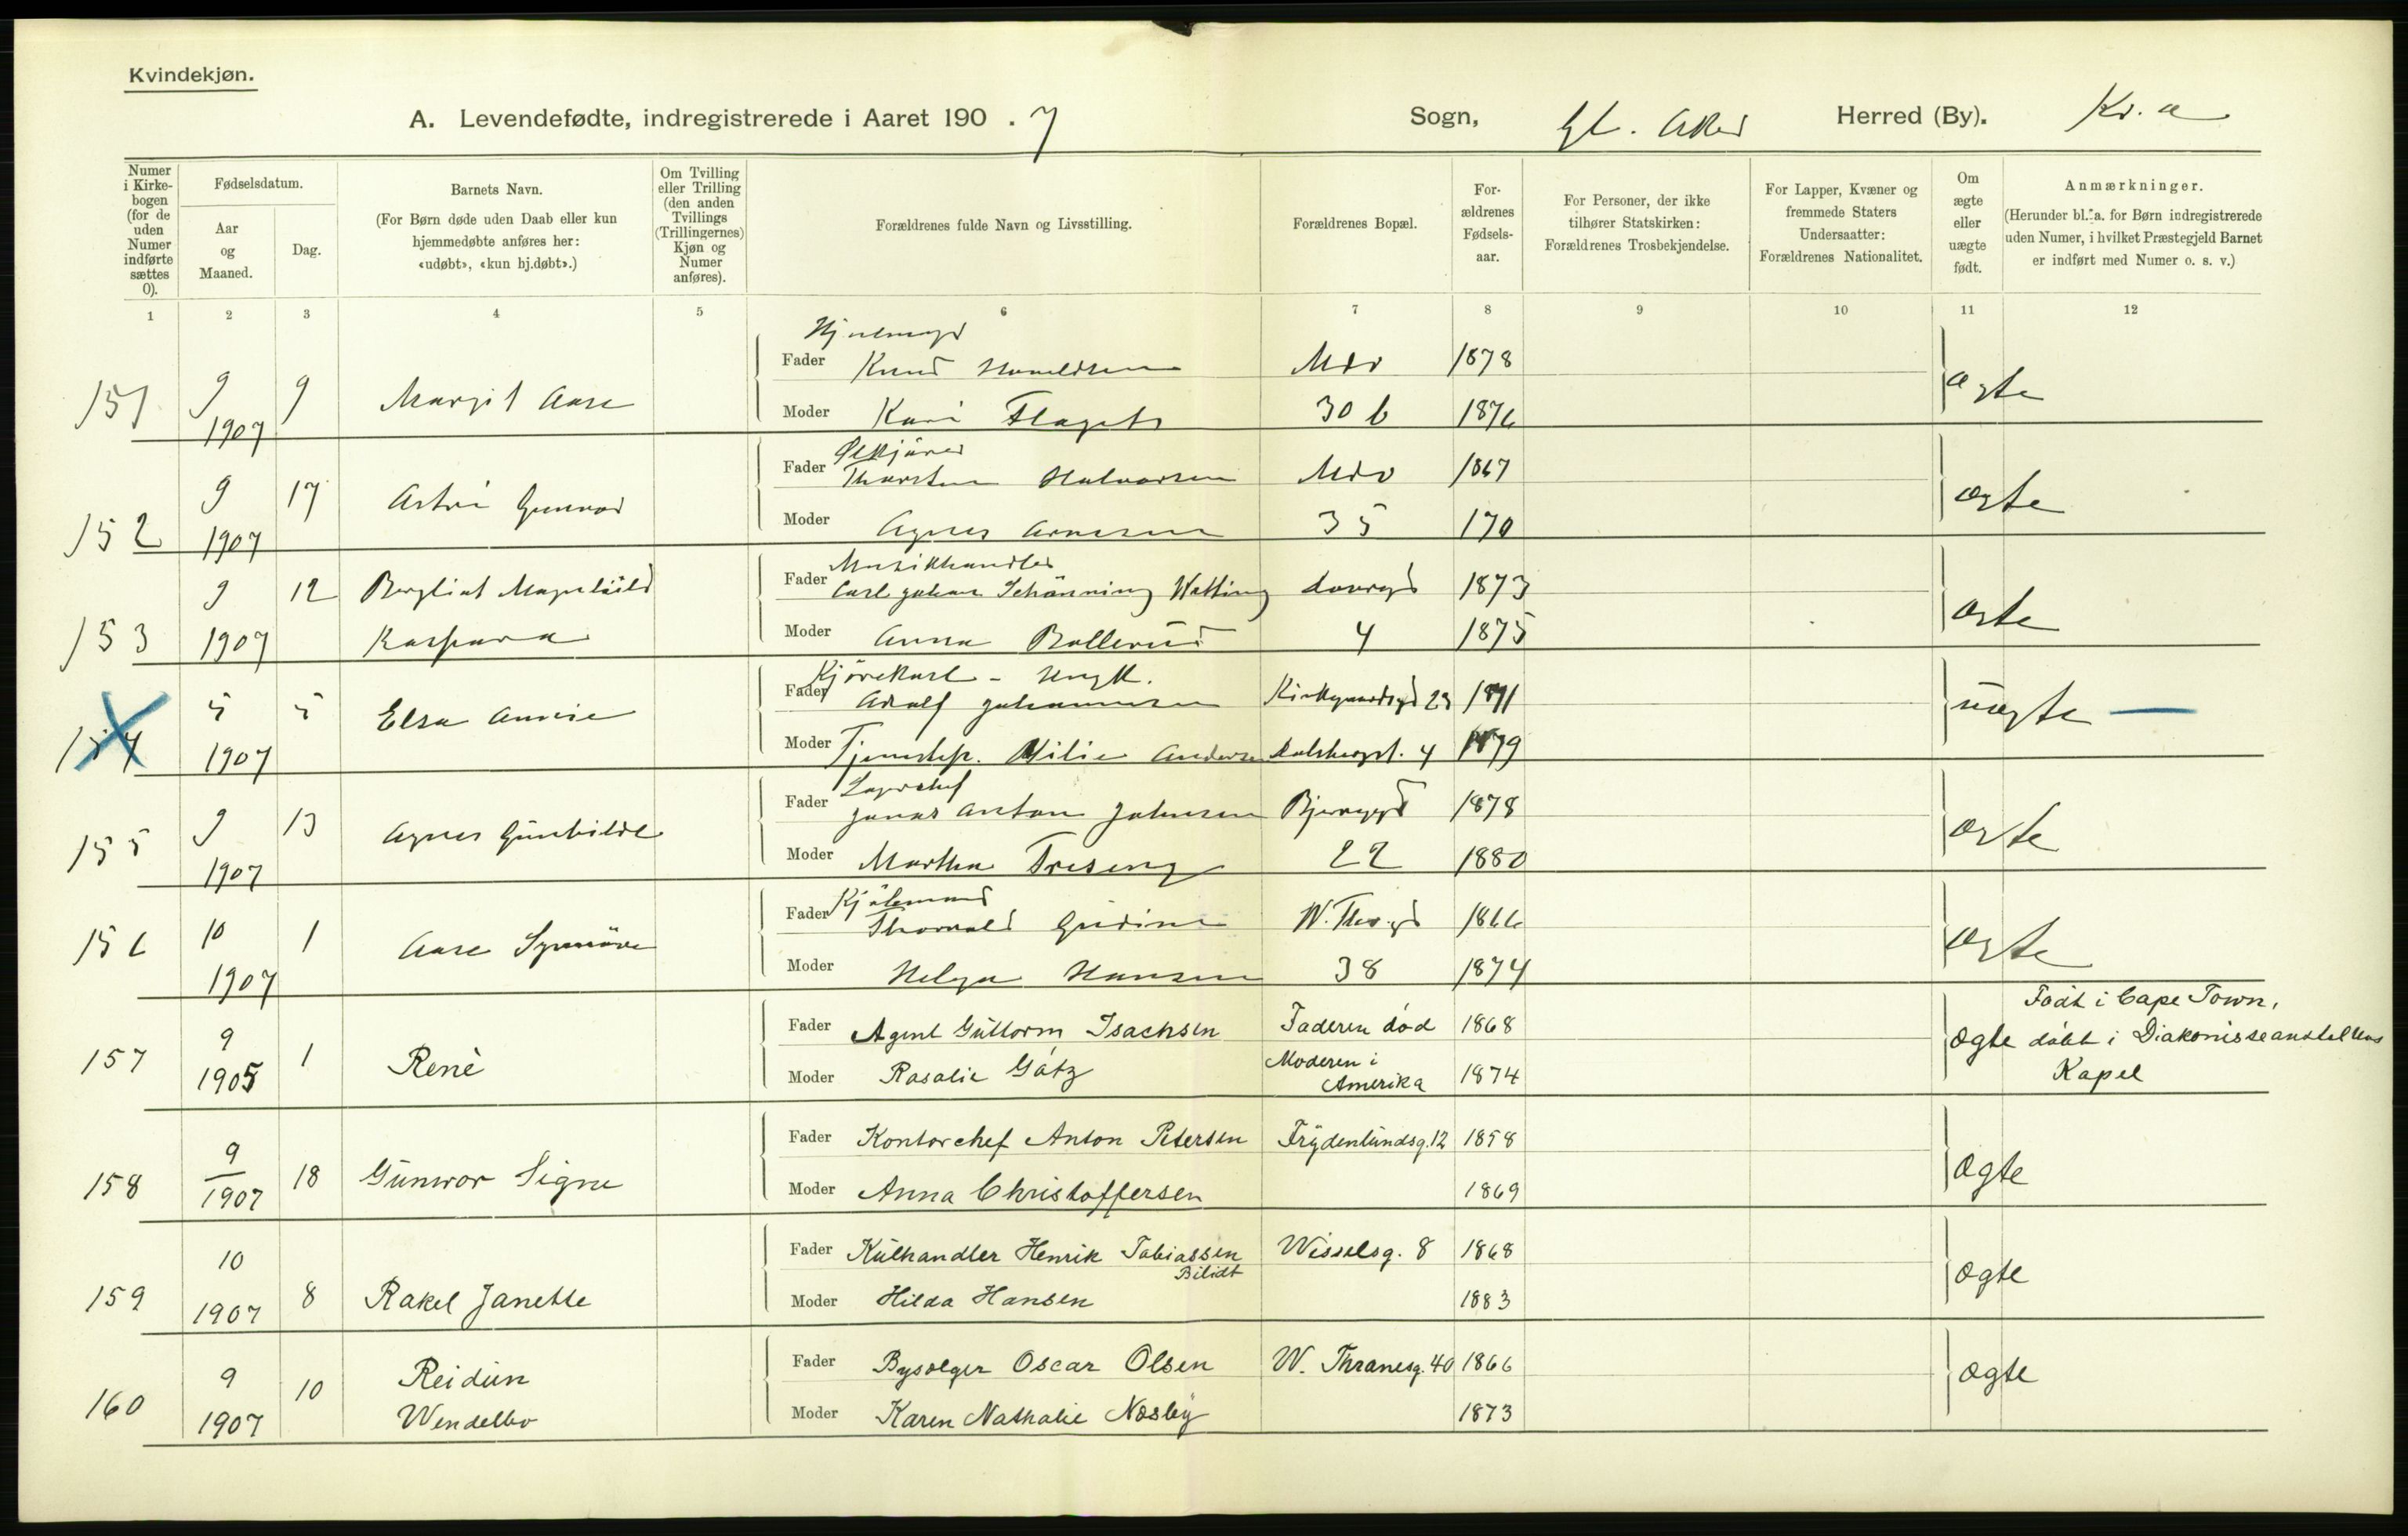 Kvindekjøn.
A. Levendefødte, indregistrerede i Aaret 190 . 7 Sogn, Gl. Aker Herred (By). Kr. a
Numer i Kirkebogen (for de uden Numer indførte sættes 0).
Fødselsdatum.
Aar og Maaned.
Dag.
Barnets Navn.
(For Børn døde uden Daab eller kun hjemmedøbte anføres her: «udøbt», «kun hj.døbt».)
Om Tvilling eller Trilling (den anden Tvillings (Trillingernes) Kjøn og Numer anføres).
Forældrenes fulde Navn og Livsstilling.
Forældrenes Bopæl.
Forældrenes Fødselsaar.
For Personer, der ikke tilhører Statskirken: Forældrenes Trosbekjendelse.
For Lapper, Kvæner og fremmede Staters Undersaatter: Forældrenes Nationalitet.
Om ægte eller uægte født.
Anmærkninger.
(Herunder bl. a. for Børn indregistrerede uden Numer, i hvilket Præstegjeld Barnet er indført med Numer o. s. v.)
1 2 3 4 5 6 7 8 9 10 11 12
151 9 1907 9 Margit Aase
Fader Knud 1878
Moder Kari 30 b 1876
ægte
152 9 1907 17 Astri Gunvor
Fader Thorsten Halvorsen 1867
Moder Agnes Arnesen 35 170
ægte
153 9 1907 12 Bergliot Magnhild Kaspara
Fader Musikhandler Carl Johan Schönning 1873
Moder Anna Bollerud 4 1875
ægte
154 5 1907 5 Elsa
Fader Kjørekarl - Ungk. Adolf Johannesen Kirkegaardsgd 23 1871
Moder Tjenestep. Milie Andersen 4 1879
uægte —
155 9 1907 13 Agnes Gunhilde
Fader Lagerchef Jonas Anton Johnsen 1878
Moder Martha Treseng 22 1880
ægte
156 10 1907 1 Aase Synnöve
Fader Thorvald 1866
Moder Helga Hansen 38 1874
ægte
157 9 1905 1 Renè
Fader Agent Guttorm Isachsen Faderen død 1868
Moder Rosalie Götz Moderen i Amerika 1874
ægte
Født i Cape Town,
døbt i Diakonisseanstaltens
Kapel
158 9 1907 18 Gunvor Signe
Fader Kontorchef Anton Petersen Frydenlundsg. 12 1858
Moder Anna Christoffersen 1869
ægte
159 10 1907 8 Rakel Janette
Fader Kulhandler Henrik Tobiassen Bilidt Wesselsg. 8 1868
Moder Hilda Hansen 1883
ægte
160 9 1907 10 Reidun Wendelbo
Fader Bysælger Oscar Olsen W. Thranesg. 40 1866
Moder Karen Nathalie Næsby 1873
ægte